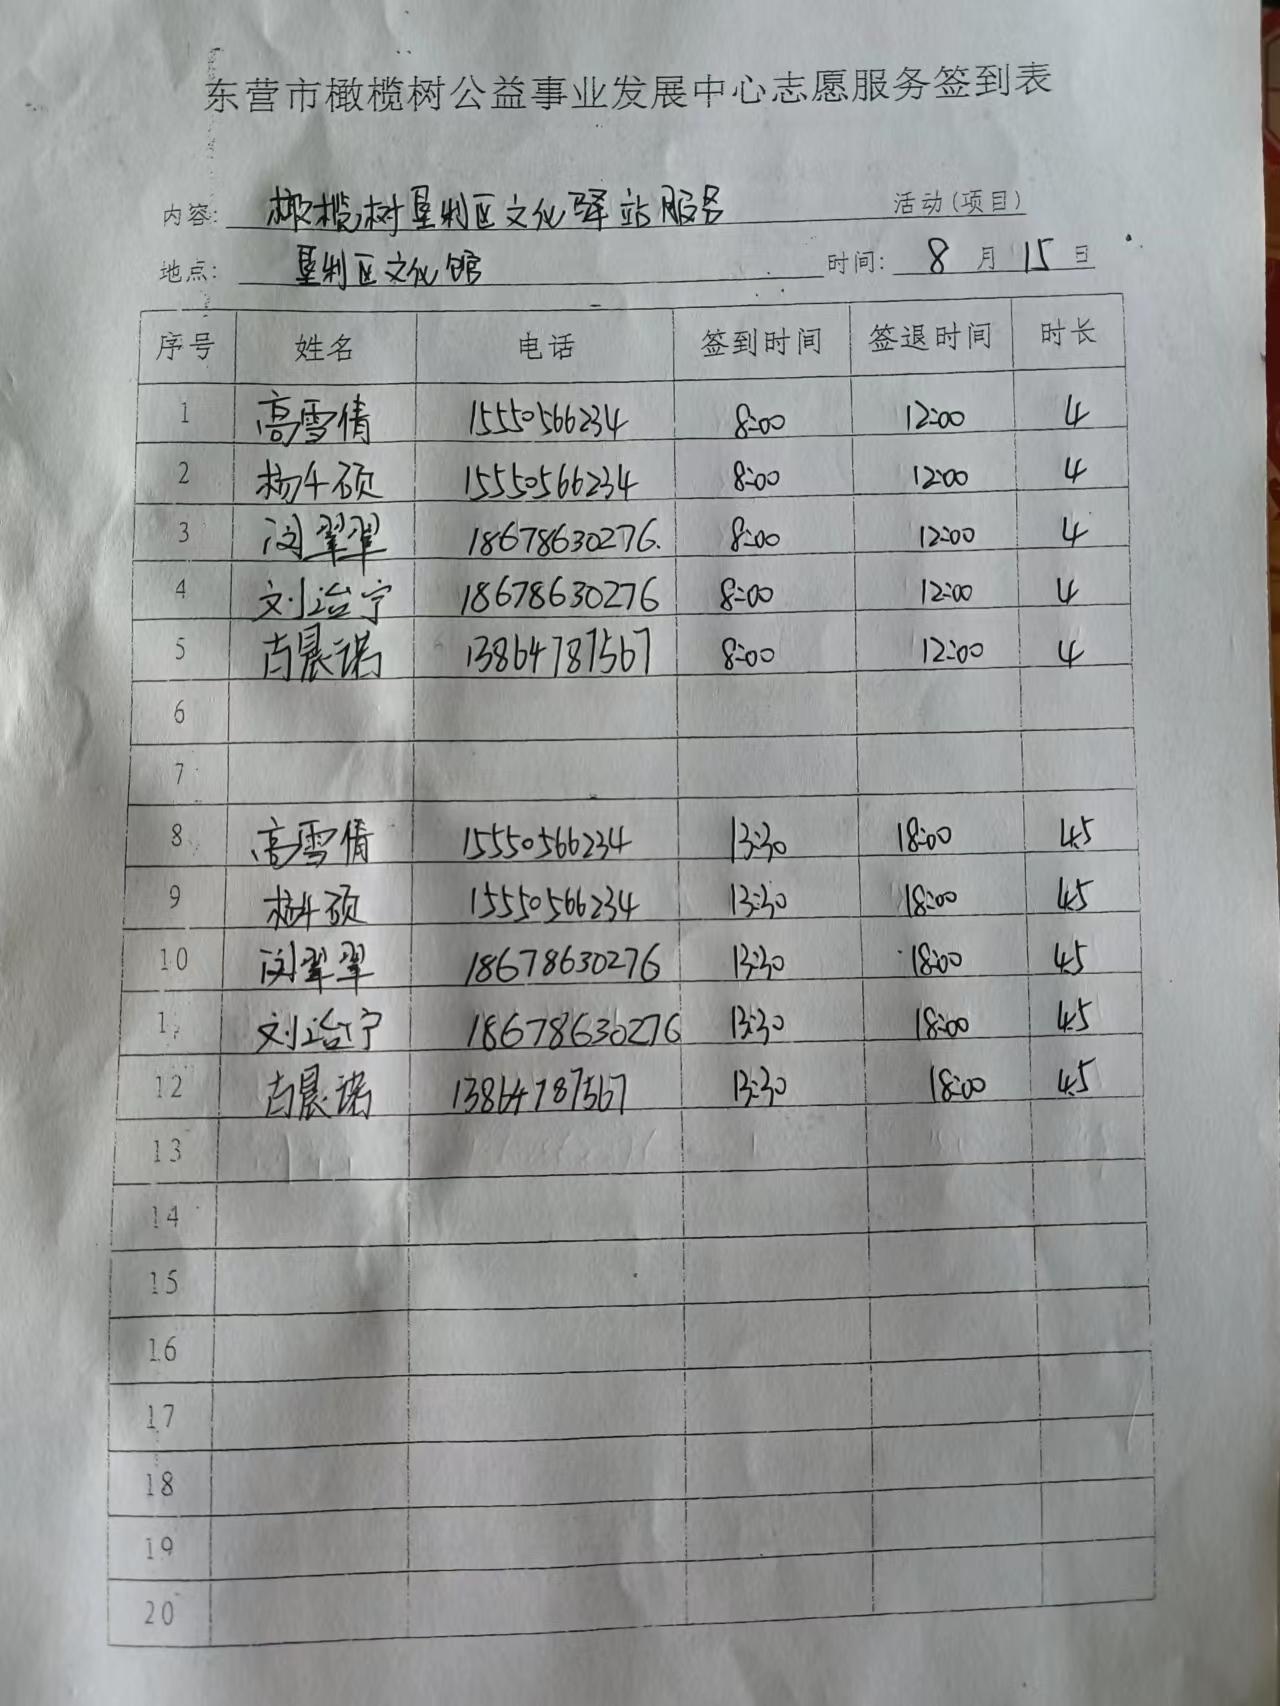 东营市橄榄树公益事业发展中心志愿服务签到表
内容: 橄榄树垦利区文化驿站服务 活动(项目)
地点: 垦利区文化馆 时间: 8 月 15 日
序号 姓名 电话 签到时间 签退时间 时长
1 高雪倩 15550566234 8:00 12:00 4
2 杨千硕 15550566234 8:00 12:00 4
3 闵翠翠 18678630276. 8:00 12:00 4
4 刘治宁 18678630276 8:00 12:00 4
5 晨诺 13864787567 8:00 12:00 4
6
7
8 高雪倩 15550566234 13:30 18:00 4.5
9 杨千硕 15550566234 13:30 18:00 4.5
10 闵翠翠 18678630276 13:30 18:00 4.5
1 刘治宁 18678630276 13:30 18:00 4.5
12 晨诺 13864787567 13:30 18:00 4.5
13
14
15
16
17
18
19
20